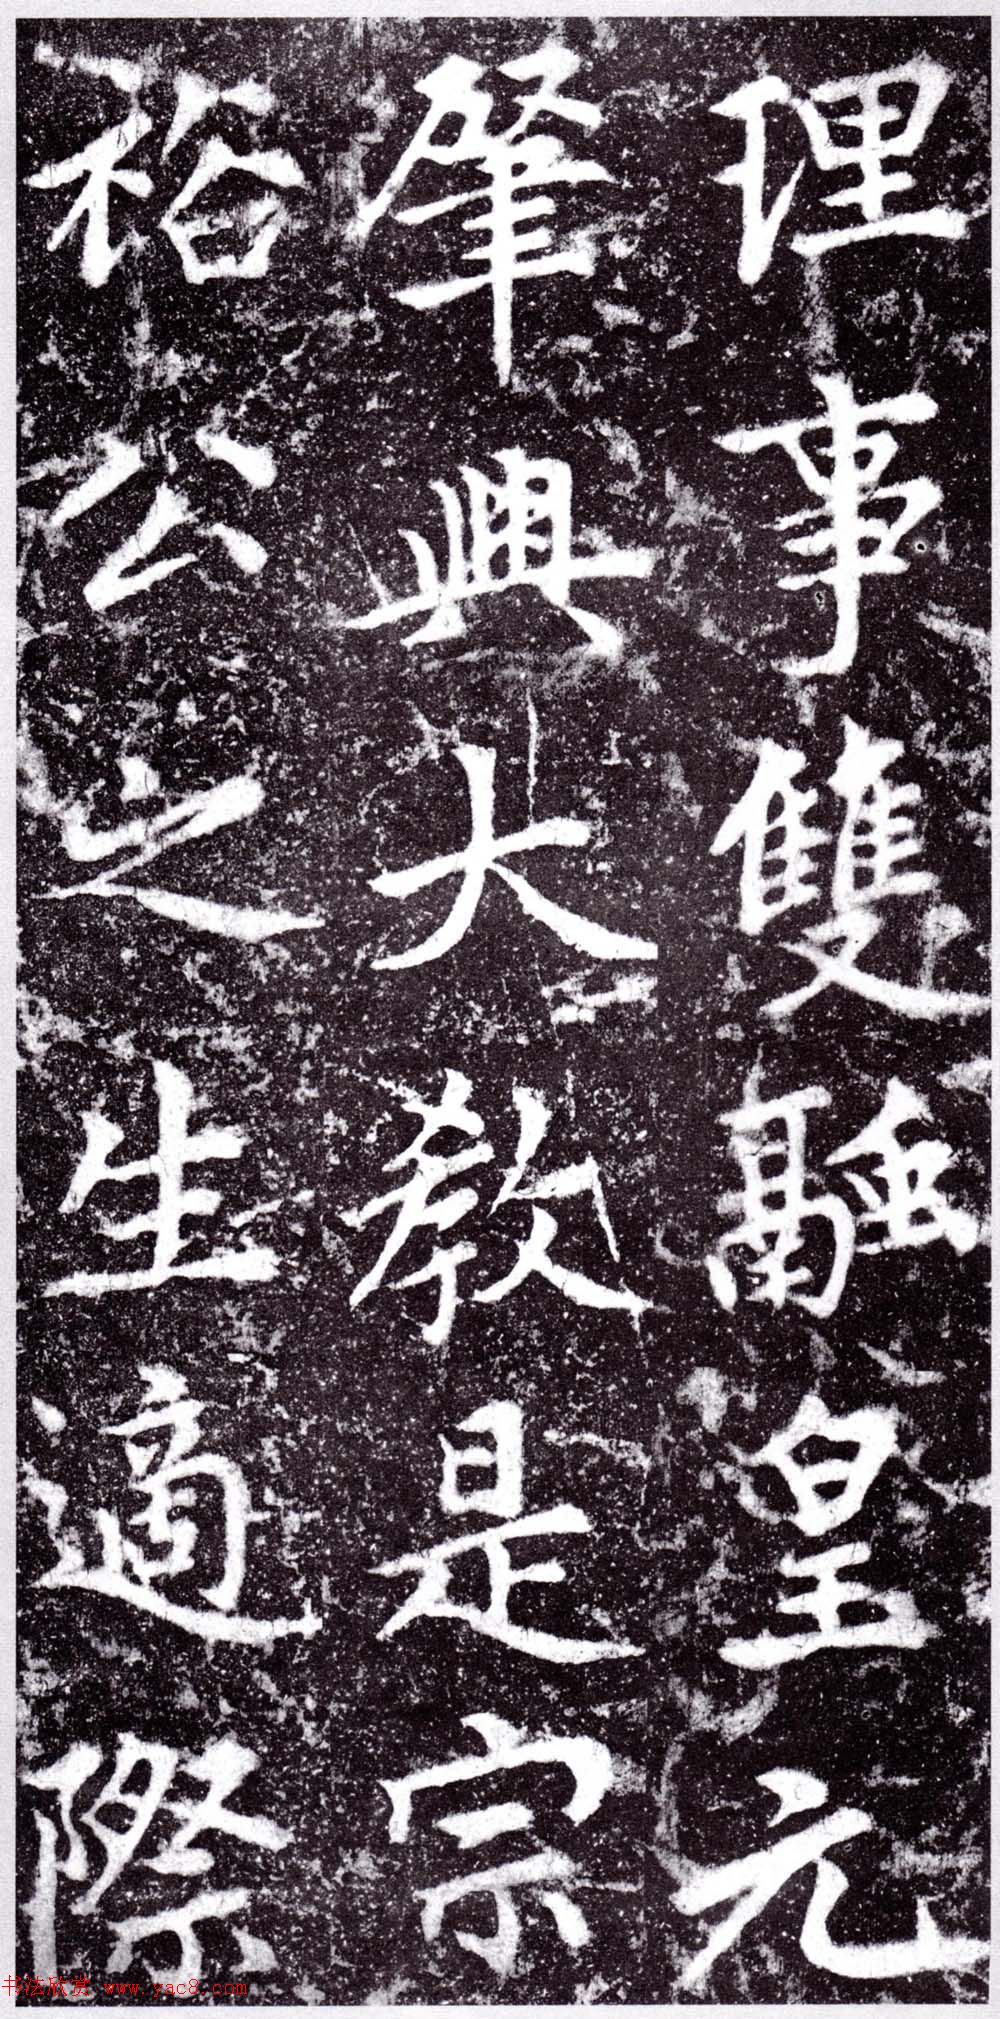 理事雙融皇元
肇興大教是宗
裕公之生適際
书法欣赏 www.yac8.com